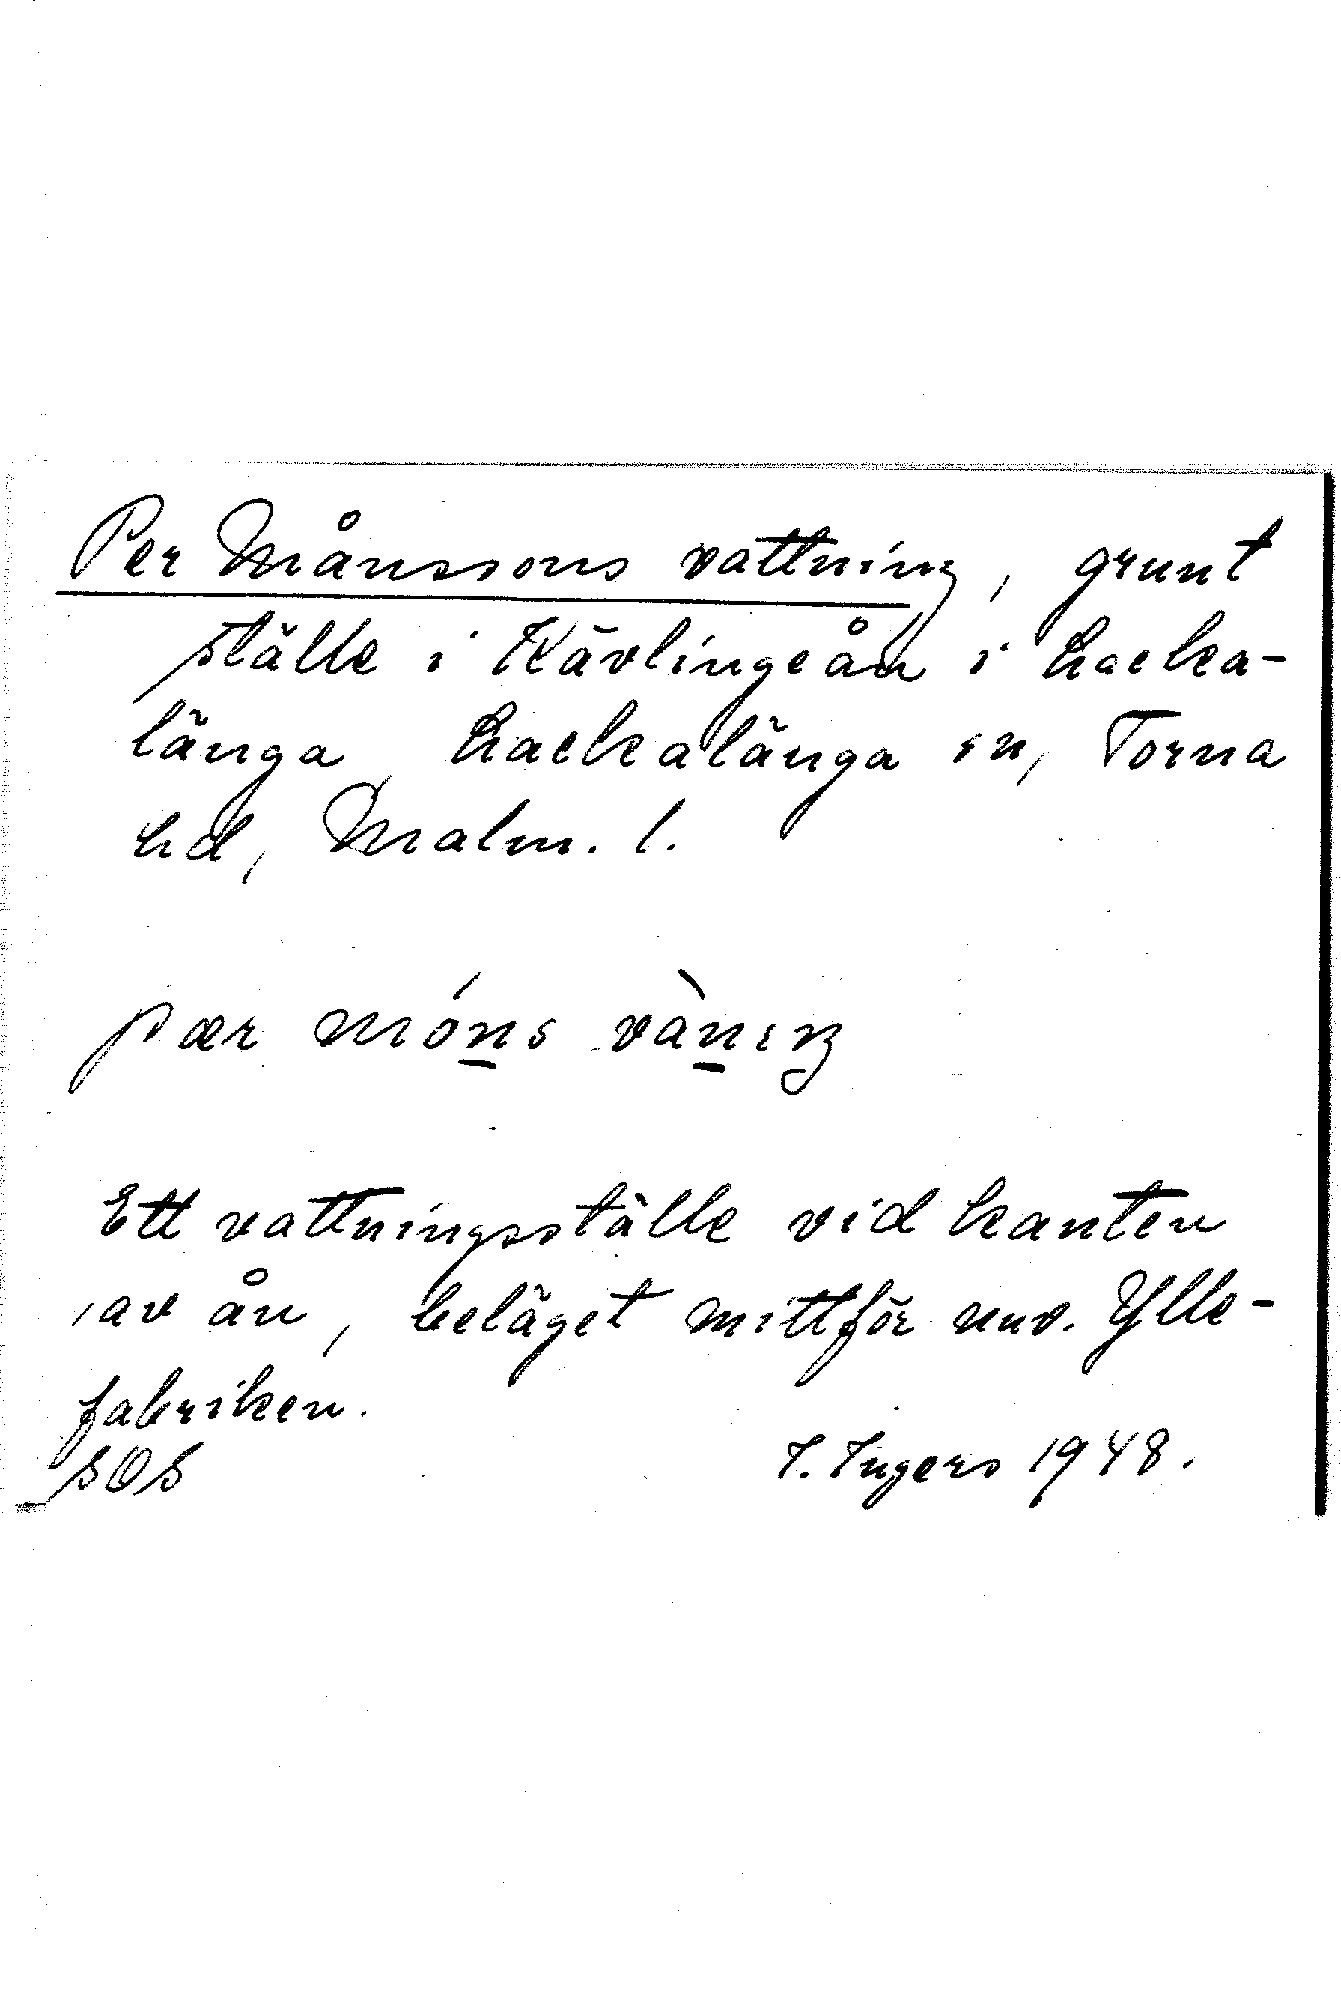 Per Månssons vattning, grunt
ställe i Kävlingeån i Hacka-
länga, Hackalänga sn, Torna
hd, Malm. l.
pær móns vànıŋ
Ett vattningsställe vid kanten
av ån, beläget mittför nuv. Ylle-
fabriken.
SOS
I. Ingers 1948.